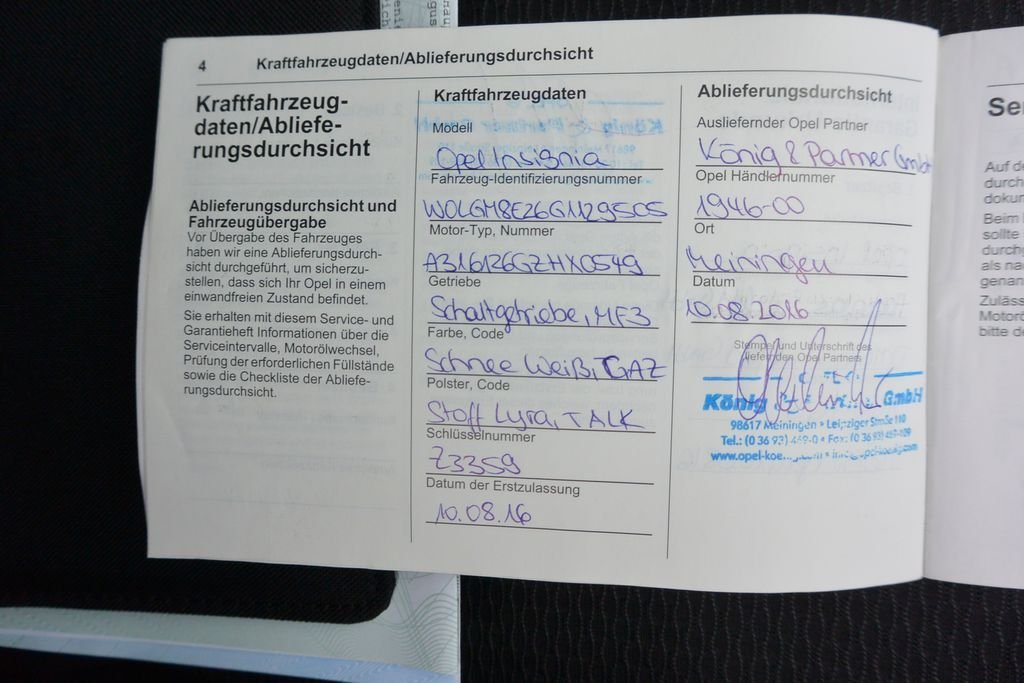 4 Kraftfahrzeugdaten/Ablieferungsdurchsicht
Kraftfahrzeug-
daten/Abliefe-
rungsdurchsicht
Ablieferungsdurchsicht und
Fahrzeugübergabe
Vor Übergabe des Fahrzeuges
haben wir eine Ablieferungsdurch-
sicht durchgeführt, um sicherzu-
stellen, dass sich Ihr Opel in einem
einwandfreien Zustand befindet.
Sie erhalten mit diesem Service- und
Garantieheft Informationen über die
Serviceintervalle, Motorölwechsel,
Prüfung der erforderlichen Füllstände
sowie die Checkliste der Abliefe-
rungsdurchsicht.
Kraftfahrzeugdaten
Modell
Opel Insignia
Fahrzeug-Identifizierungsnummer
W0LGM8E26G1129505
Motor-Typ, Nummer
Getriebe
Schaltgetriebe, MF3
Farbe, Code
Schnee Weiß, GAZ
Polster, Code
Stoff Lyra, TALK
Schlüsselnummer
Z3359
Datum der Erstzulassung
10.08.16
Ablieferungsdurchsicht
Ausliefernder Opel Partner
König & Partner GmbH
Opel Händlernummer
1946-00
Ort
Meiningen
Datum
10.08.2016
Stempel und Unterschrift des
liefernden Opel Partners
König GmbH
98617 Meiningen • Leipziger Straße 110
Tel.: (0 36 93) • Fax: (0 36 93)
www.opel-koe
Se
Auf d
durch
dokun
Beim
sollte
durchg
als na
genan
Zuläss
Motorö
bitte d